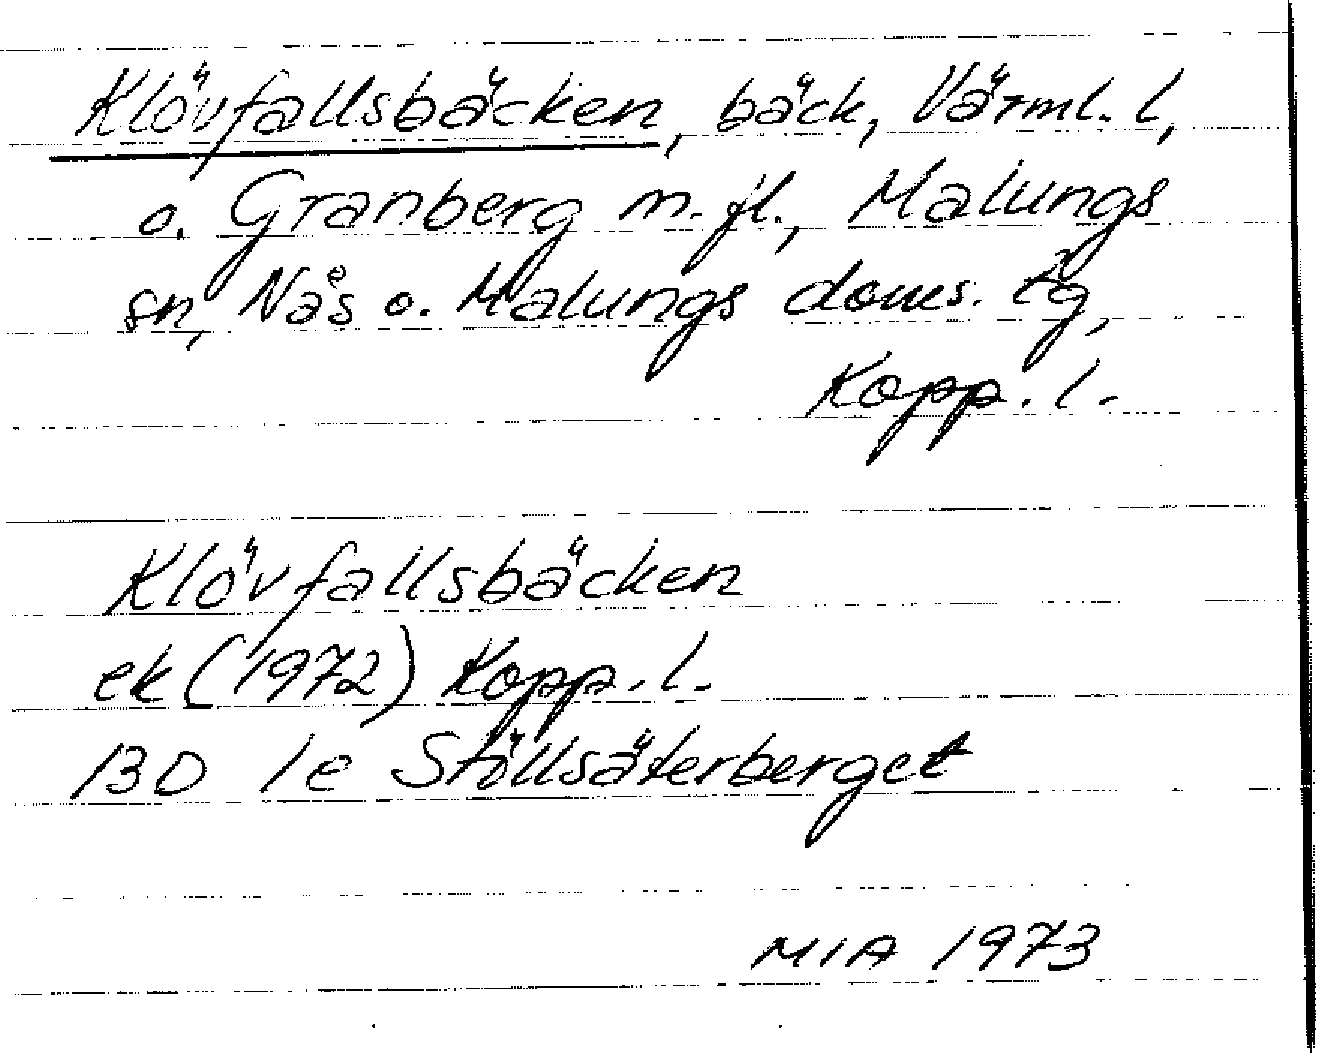 Klövfallsbäcken, bäck, Värml. l,
o. Granberg m. fl., Malungs
sn, Nås o. Malungs doms. tg,
Kopp. l.
Klövfallsbäcken
ek (1972) Kopp. l.
13D 1e Stöllsäterberget
MIA 1973